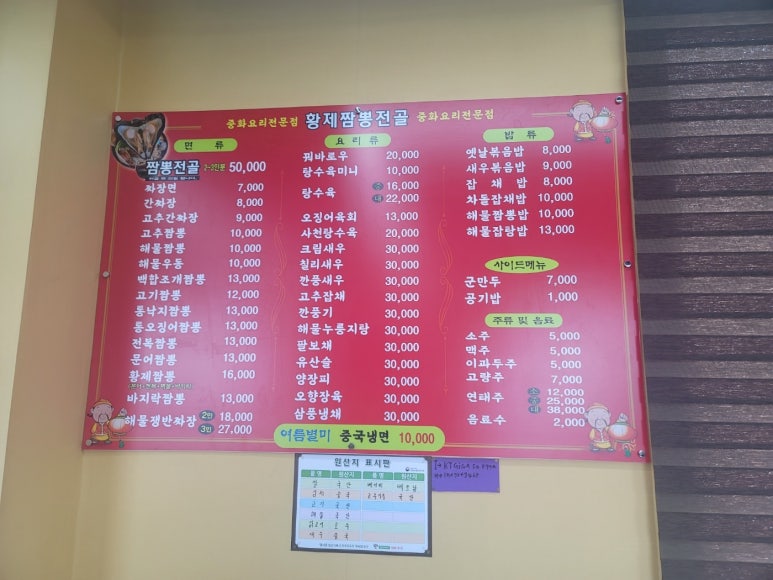 중화요리전문점 황제짬뽕전골 중화요리전문점
면 류
짬뽕전골 2~3인분 50,000
짜장면 7,000
간짜장 8,000
고추간짜장 9,000
고추짬뽕 10,000
해물짬뽕 10,000
해물우동 10,000
백합조개짬뽕 13,000
고기짬뽕 12,000
통낙지짬뽕 13,000
통오징어짬뽕 13,000
전복짬뽕 13,000
문어짬뽕 13,000
황제짬뽕 16,000
바지락짬뽕 13,000
해물쟁반짜장 2인 18,000
3인 27,000
요 리 류
꿔바로우 20,000
탕수육미니 10,000
탕수육 중 16,000
대 22,000
오징어육회 13,000
사천탕수육 20,000
크림새우 30,000
칠리새우 30,000
깐풍새우 30,000
고추잡채 30,000
깐풍기 30,000
해물누룽지탕 30,000
팔보채 30,000
유산슬 30,000
양장피 30,000
오향장육 30,000
삼품냉채 30,000
밥 류
옛날볶음밥 8,000
새우볶음밥 9,000
잡 채 밥 8,000
차돌잡채밥 10,000
해물짬뽕밥 10,000
해물잡탕밥 13,000
사이드메뉴
군만두 7,000
공기밥 1,000
주류 및 음료
소주 5,000
맥주 5,000
이과두주 5,000
고량주 7,000
연태주 소 12,000
중 25,000
대 38,000
음료수 2,000
여름별미 중국냉면 10,000
원산지 표시판
품 명 원산지 품 명 원산지
쌀 국 산